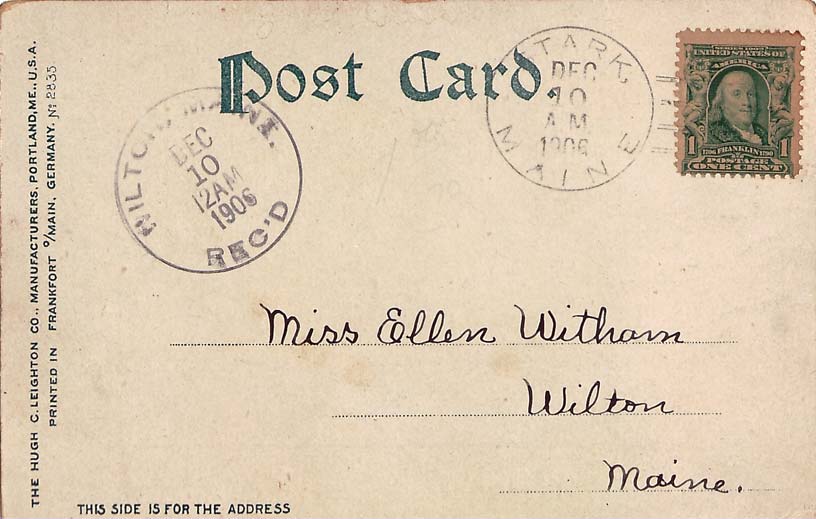 Post Card.
WILTON, MAINE.
DEC
10
12AM
1906
REC'D
STARK,
DEC
10
A.M.
1906
MAINE
SERIES 1902
UNITED STATES OF
AMERICA
1706 FRANKLIN 1790
1 1
POSTAGE
ONE CENT
Miss Ellen Witham
Wilton
Maine.
THE HUGH C. LEIGHTON CO., MANUFACTURERS, PORTLAND, ME., U.S.A.
PRINTED IN FRANKFORT O/MAIN, GERMANY. No 2835
THIS SIDE IS FOR THE ADDRESS